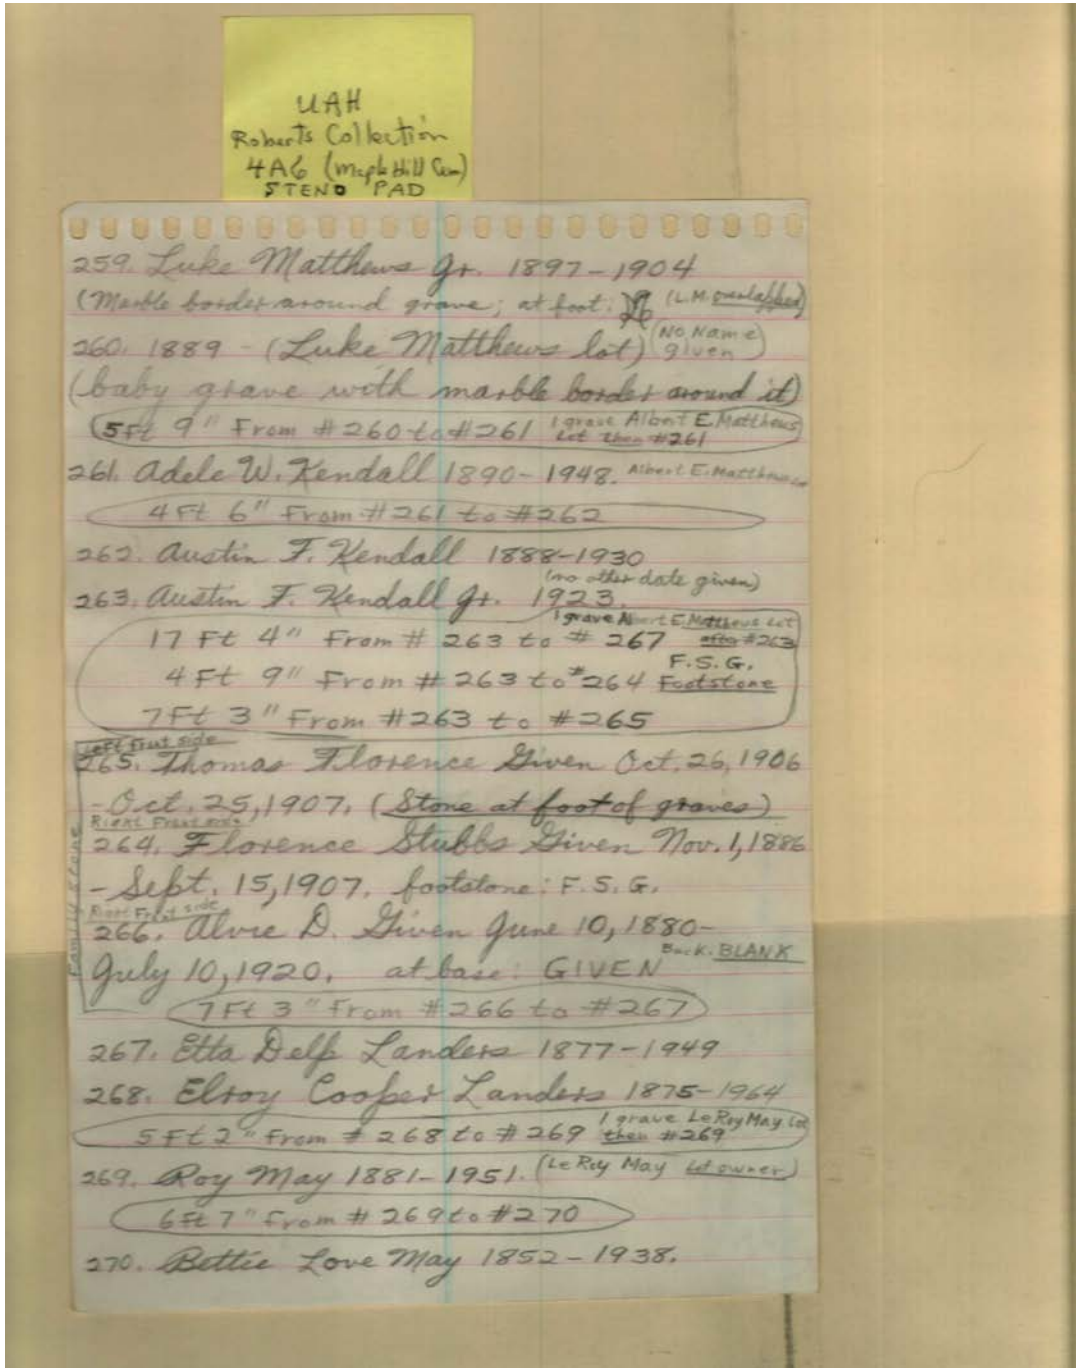 UAH
Roberts Collection
4A6 (Maple Hill Cem)
STENO PAD
259. Luke Matthews Jr. 1897-1904
(Marble border around grave; at foot: (L.M. overlapped)
260. 1889 - (Luke Matthews lot) (No Name given)
(baby grave with marble border around it)
5 Ft 9" From #260 to #261 1 grave Albert E. Matthews Lot then #261
261. Adele W. Kendall 1890-1948. Albert E. Matthews Lot
4 Ft 6" From #261 to #262
262. Austin F. Kendall 1888-1930
(no other date given)
263. Austin F. Kendall Jr. 1923.
1 grave Albert E. Matthews Lot
17 Ft 4" From # 263 to # 267 after #263
F.S.G.
4 Ft 9" From # 263 to #264 Footstone
7 Ft 3" From #263 to #265
Left Front side
265. Thomas Florence Given Oct. 26, 1906
- Oct. 25, 1907. (Stone at foot of graves)
Right Front side
264. Florence Stubbs Given Nov. 1, 1886
- Sept. 15, 1907. footstone: F.S.G.
Right Front side
266. Alvie D. Given June 10, 1880-
Back: BLANK
July 10, 1920. at base: GIVEN
Family stone
7 Ft 3" From #266 to #267
267. Etta Delp Landers 1877-1949
268. Elroy Cooper Landers 1875-1964
5 Ft 2" From # 268 to # 269 1 grave LeRoy May Lot then #269
269. Roy May 1881-1951. (LeRoy May Lot owner)
6 Ft 7" From # 269 to #270
270. Bettie Love May 1852-1938.